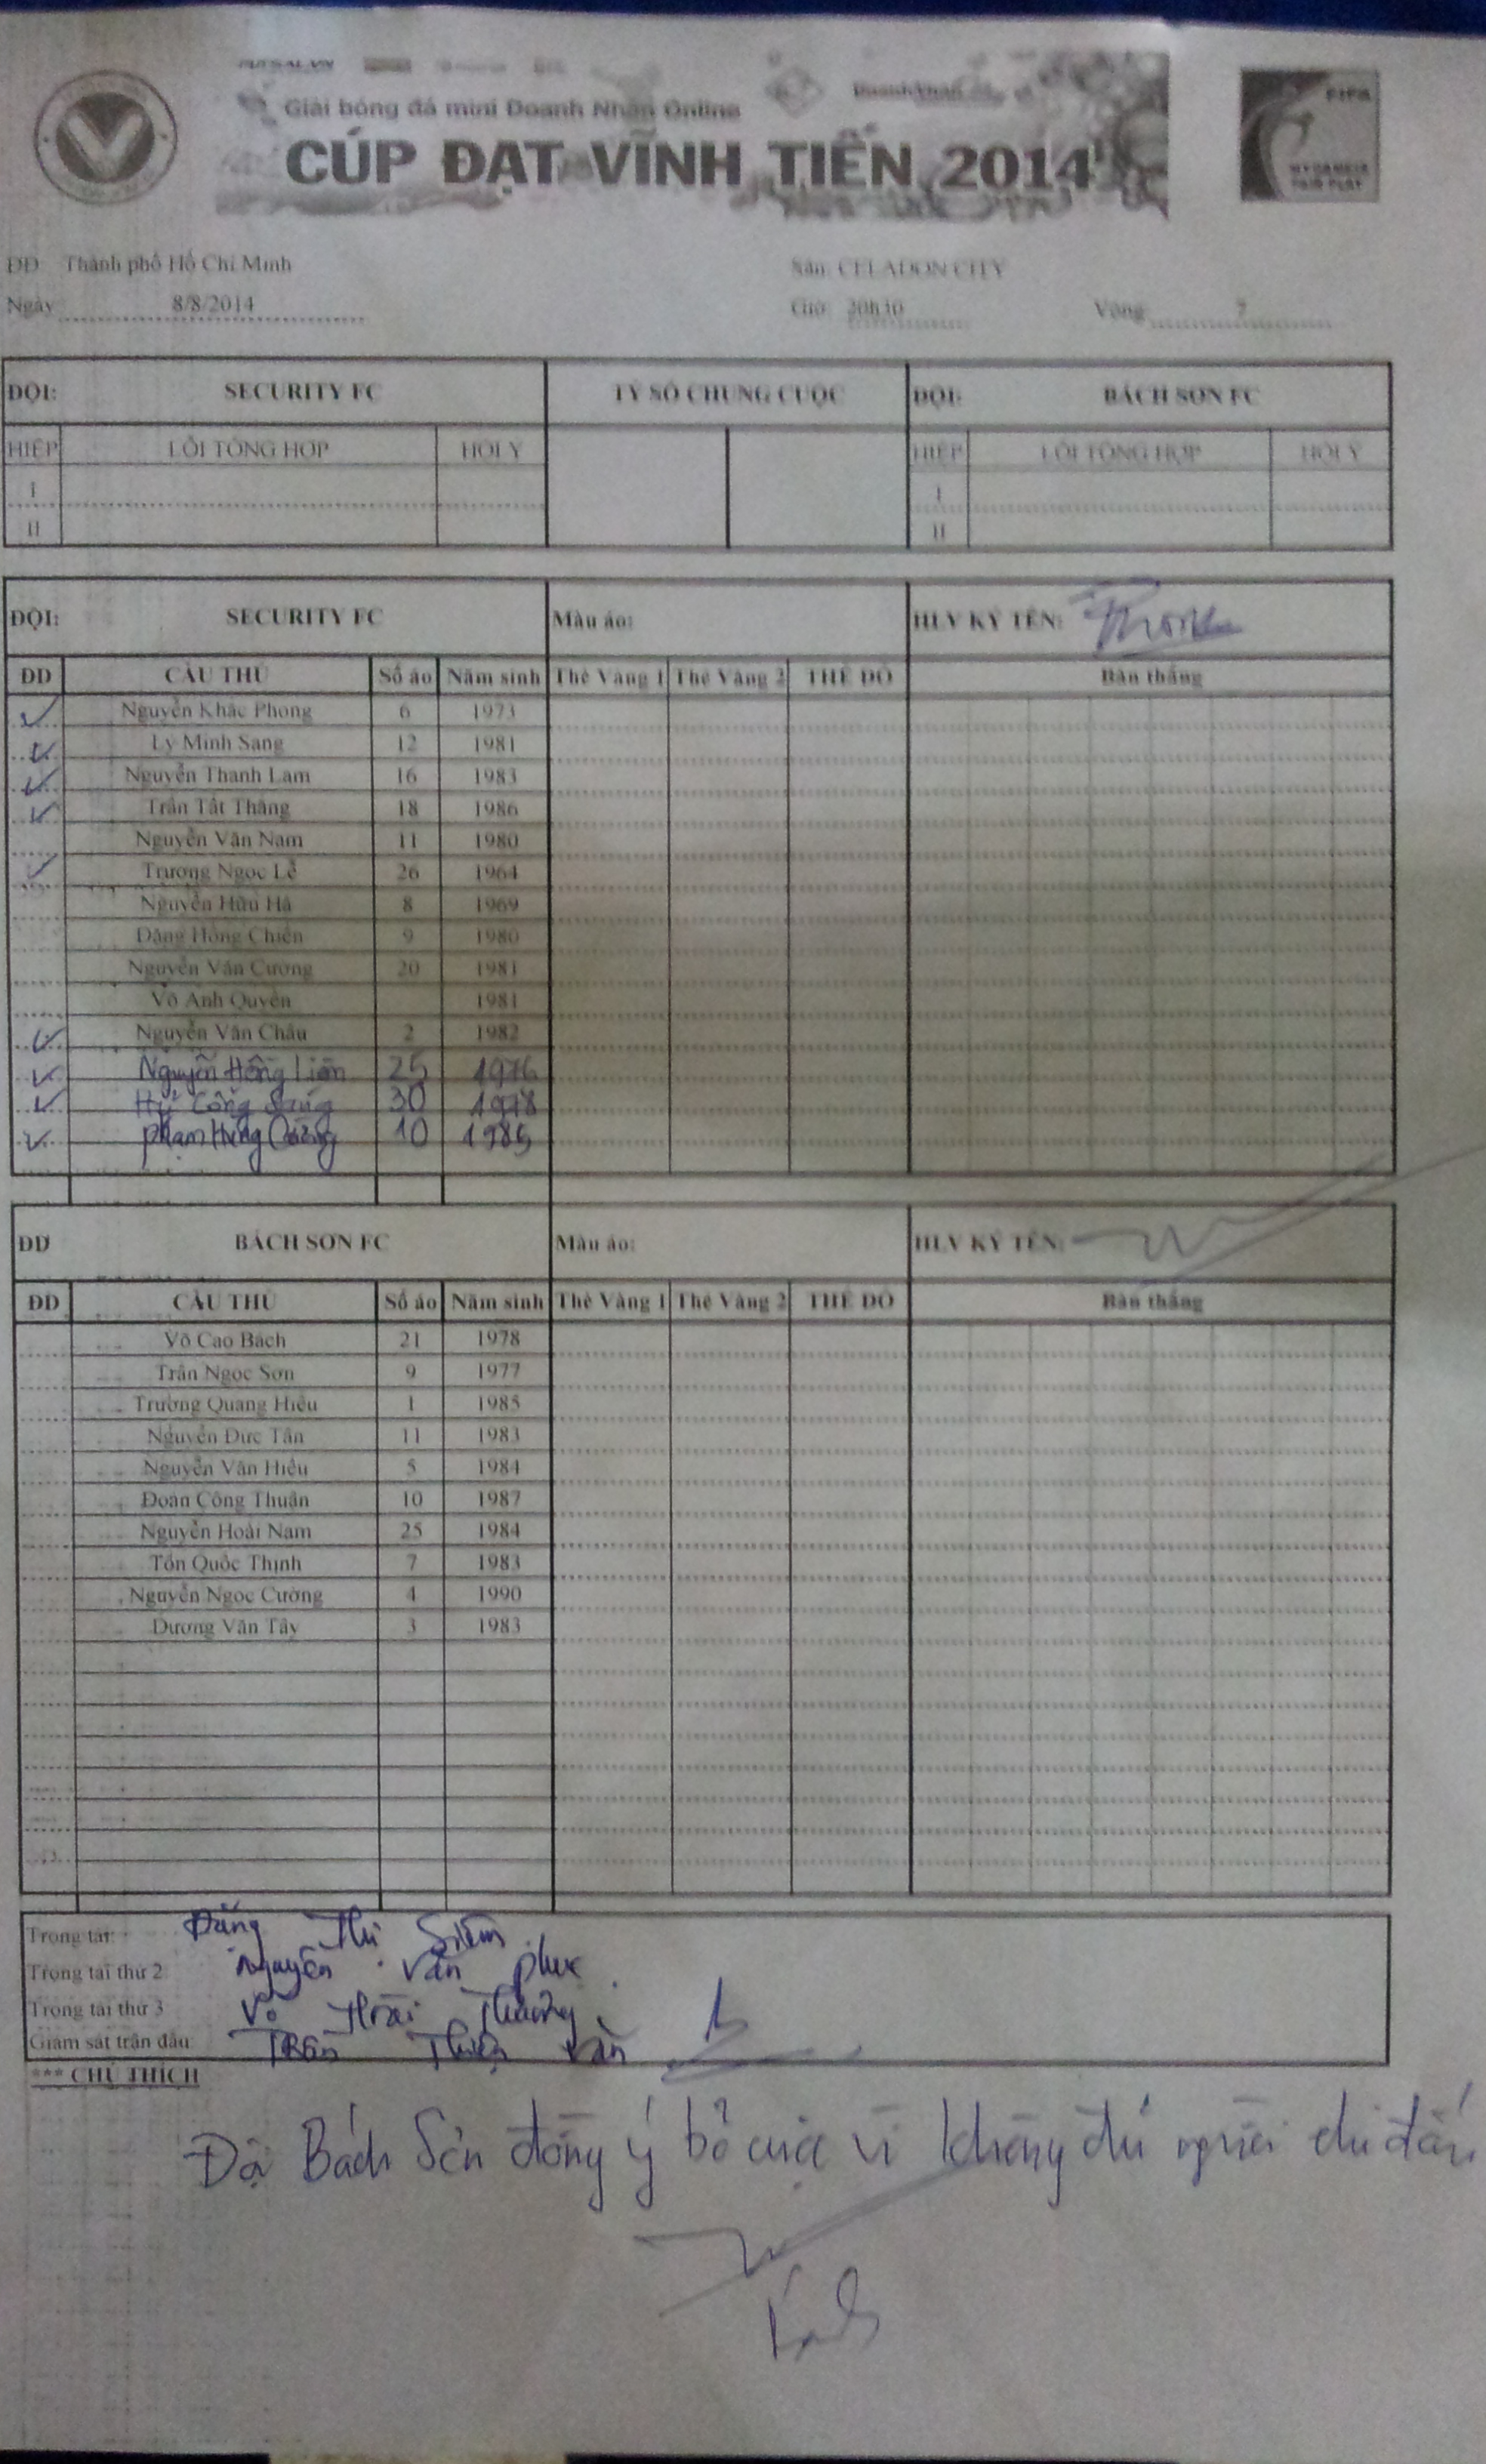 FUTSAL.VN
Giải bóng đá mini Doanh Nhân Online
CÚP ĐẠT VĨNH TIẾN 2014
FIFA
MY GAME IS
FAIR PLAY
ĐĐ Thành phố Hồ Chí Minh Sân: CELADON CITY
Ngày 8/8/2014 Giờ 20h30 Vòng 7
ĐỘI: SECURITY FC TỶ SỐ CHUNG CUỘC ĐỘI: BÁCH SƠN FC
HIỆP LỖI TỔNG HỢP HỘI Ý HIỆP LỖI TỔNG HỢP HỘI Ý
I I
II II
ĐỘI: SECURITY FC Màu áo: HLV KÝ TÊN: Phong
ĐD CẦU THỦ Số áo Năm sinh Thẻ Vàng 1 Thẻ Vàng 2 THẺ ĐỎ Bàn thắng
Nguyễn Khắc Phong 6 1973
Lý Minh Sang 12 1981
Nguyễn Thanh Lam 16 1983
Trần Tất Thắng 18 1986
Nguyễn Văn Nam 11 1980
Trương Ngọc Lễ 26 1964
Nguyễn Hữu Hà 8 1969
Đặng Hồng Chiến 9 1980
Nguyễn Văn Cường 20 1981
Võ Anh Quyền 1981
Nguyễn Văn Châu 2 1982
Nguyễn Hồng Liên 25 1976
Công 30 1978
Phạm Hùng 10 1985
ĐD BÁCH SƠN FC Màu áo: HLV KÝ TÊN:
ĐD CẦU THỦ Số áo Năm sinh Thẻ Vàng 1 Thẻ Vàng 2 THẺ ĐỎ Bàn thắng
Võ Cao Bách 21 1978
Trần Ngọc Sơn 9 1977
Trương Quang Hiếu 1 1985
Nguyễn Đức Tân 11 1983
Nguyễn Văn Hiếu 5 1984
Đoàn Công Thuận 10 1987
Nguyễn Hoài Nam 25 1984
Tôn Quốc Thịnh 7 1983
Nguyễn Ngọc Cường 4 1990
Dương Văn Tây 3 1983
Trọng tài: Đặng Thị
Trọng tài thứ 2 Nguyễn Văn Phúc
Trọng tài thứ 3 Võ Hoài Thương
Giám sát trận đấu Trần Thiện Văn
*** CHÚ THÍCH
Đội Bách Sơn đồng ý bỏ cuộc vì không đủ người thi đấu.